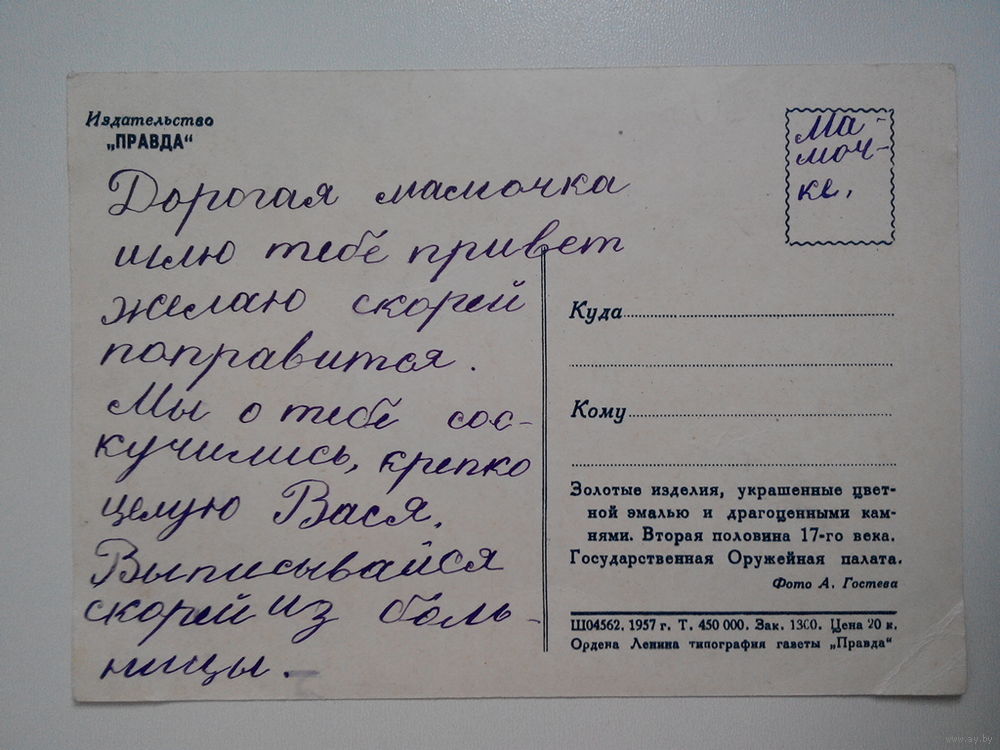 Издательство
„ПРАВДА“
Дорогая мамочка
шлю тебе привет
желаю скорей
поправится.
Мы о тебе сос-
кучились, крепко
целую Вася.
Выписывайся
скорей из боль-
ницы.
Ма-
моч-
ке.
Куда
Кому
Золотые изделия, украшенные цвет-
ной эмалью и драгоценными кам-
нями. Вторая половина 17-го века.
Государственная Оружейная палата.
Фото А. Гостева
Ш04562. 1957 г. Т. 450 000. Зак. 1300. Цена 20 к.
Ордена Ленина типография газеты „Правда“
www.ay.by